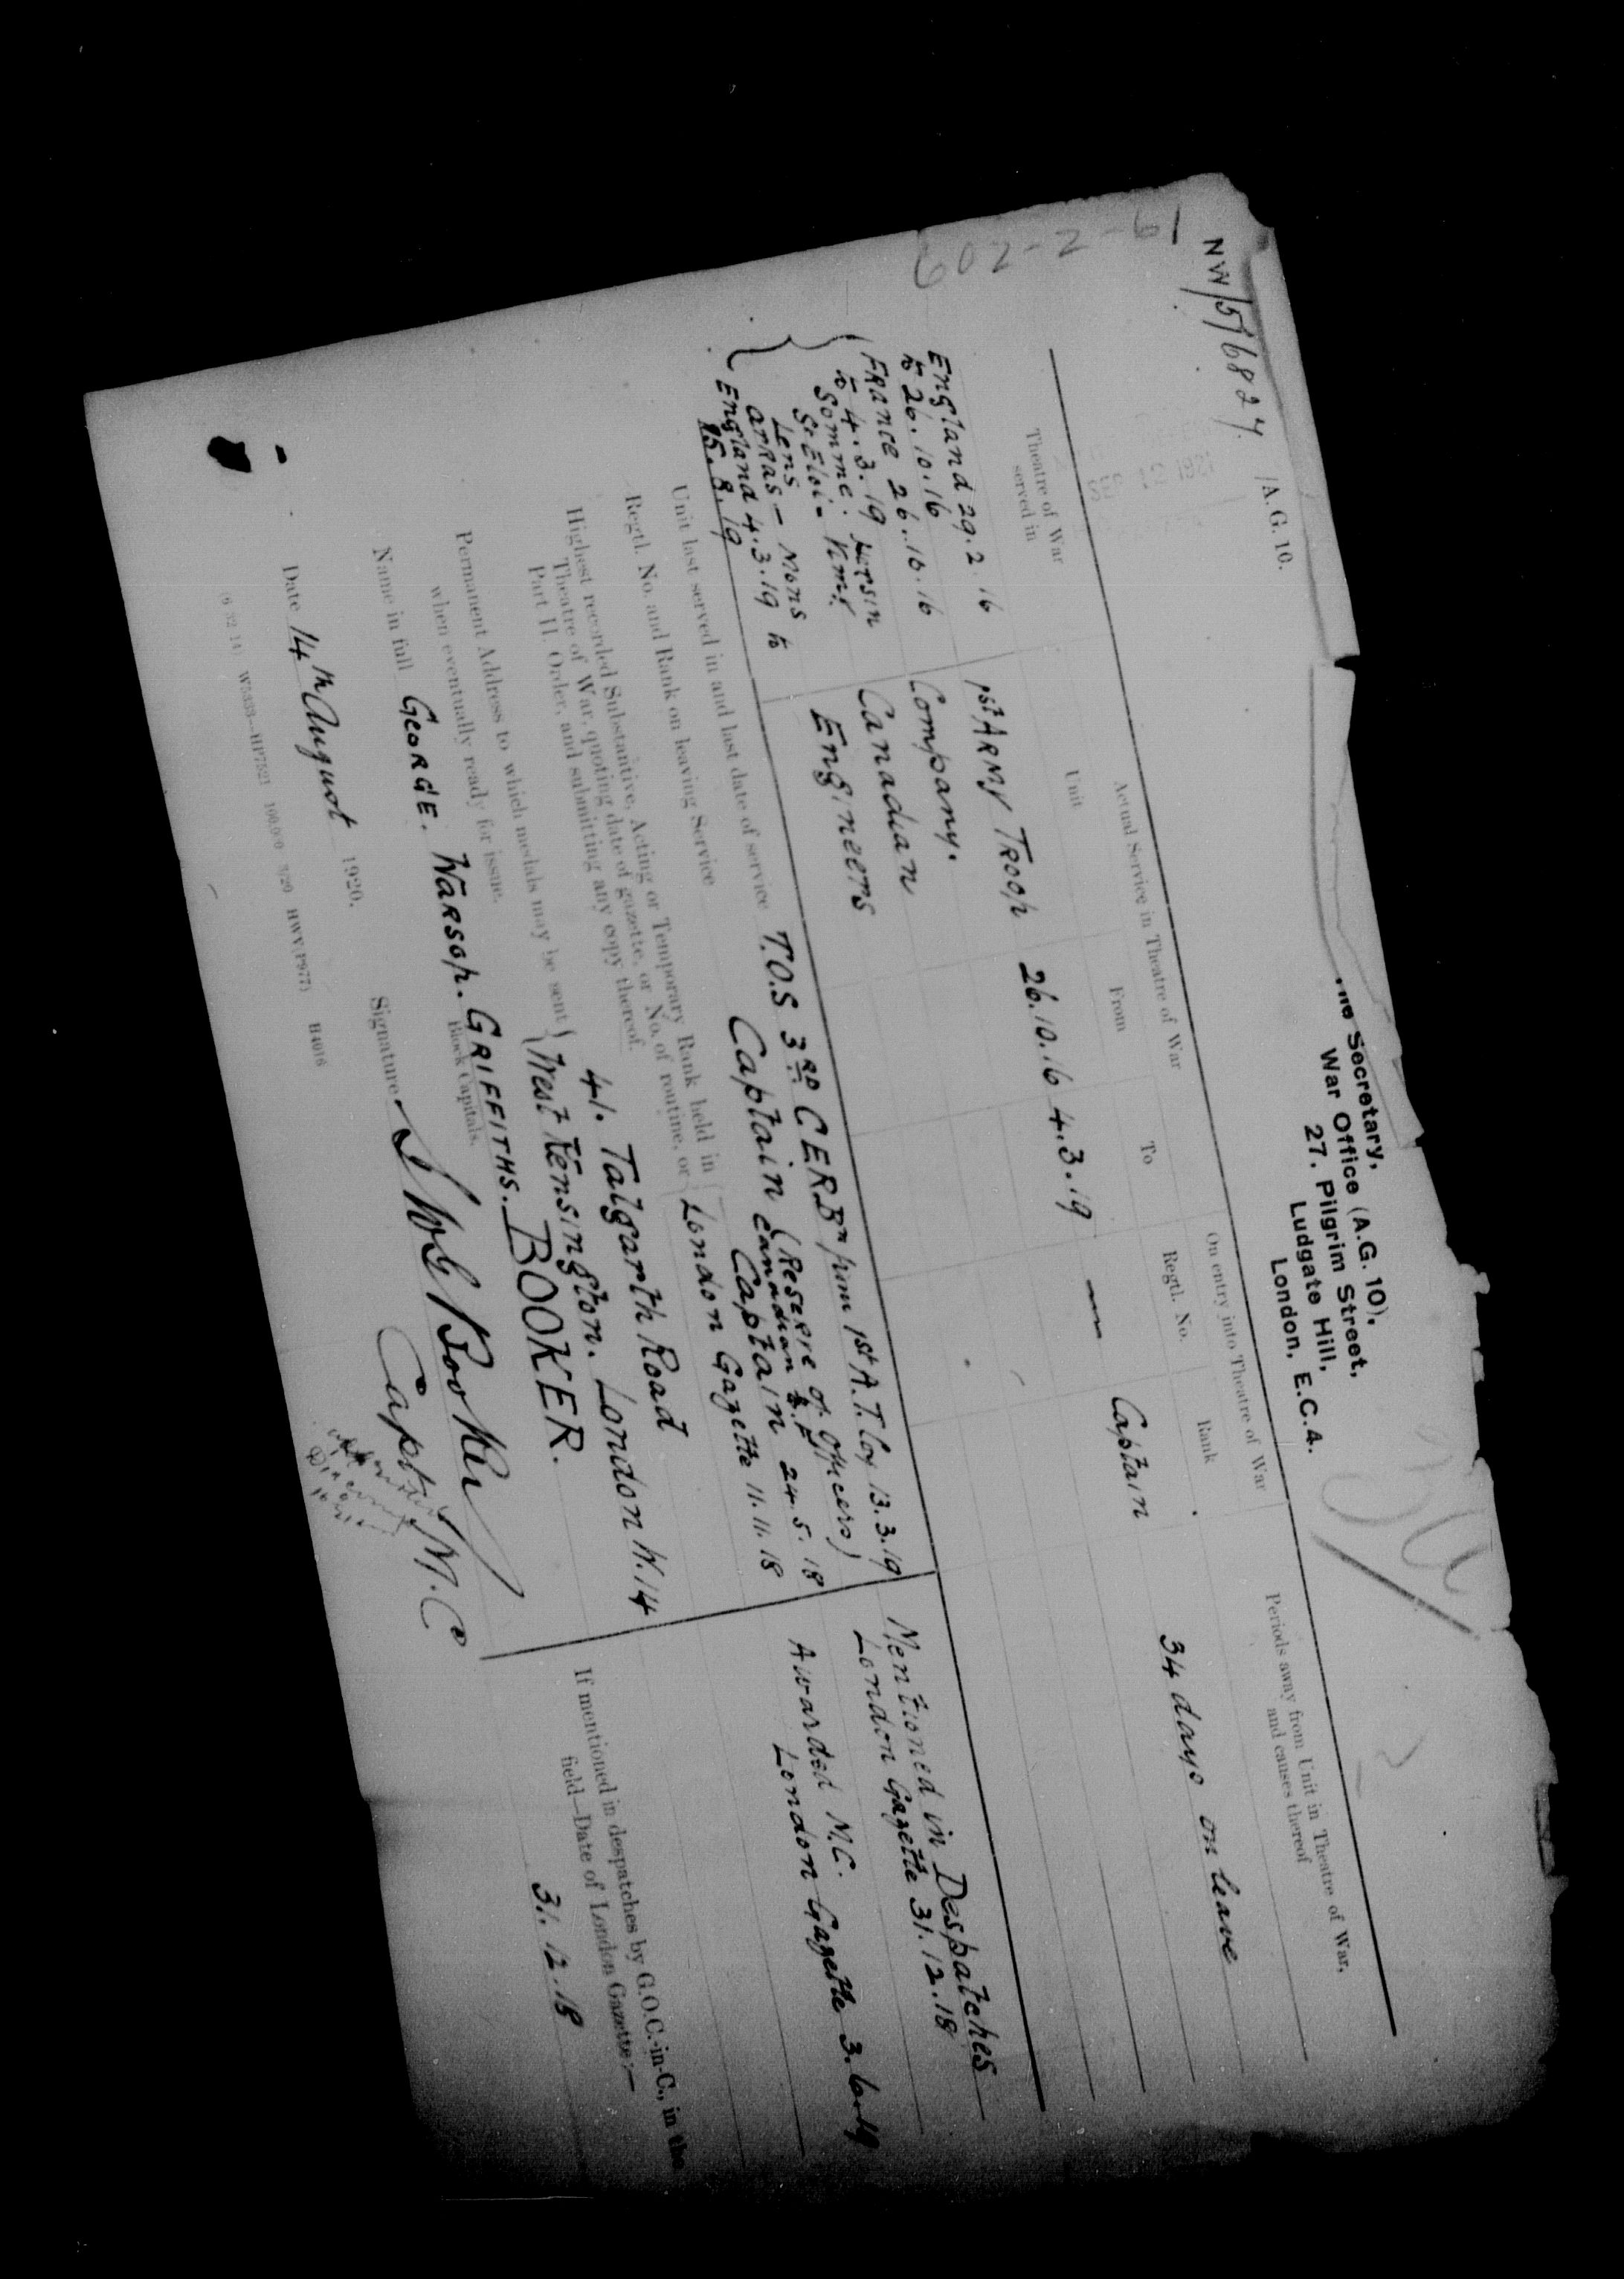 NW/5/6827 /A.G.10.
19-2-209
SEP 13 1921
Secretary,
War Office (A.G. 10),
27, Pilgrim Street,
Ludgate Hill,
London, E.C.4.
Theatre of War
served in
Actual Service in Theatre of War
Unit
From
To
On entry into Theatre of War
Regtl. No.
Rank
Periods away from Unit in Theatre of War,
and causes thereof
England 29.2.16
to 26.10.16
FRANCE 26.10.16
to 4.3.19 Hersin
Somme: Vimy
St Eloi-
Lens
arras - Mons
England 4.3.19 to
15.8.19
1st ARMY TROOP
Company.
Canadian
Engineers
26.10.16
4.3.19
—
Captain
34 days on leave
Mentioned in Despatches
London Gazette 31.12.18
Awarded M.C.
London Gazette 3.
Unit last served in and last date of service T.O.S 3RD CERBn from 1st A.T. Coy 13.3.19
Regtl. No. and Rank on leaving Service Captain (Reserve of Officers)
Highest recorded Substantive, Acting or Temporary Rank held in
Theatre of War, quoting date of gazette, or No. of routine, or
Part II. Order, and submitting any copy thereof.
Canadian
Captain 24.5.18
London Gazette 11.11.18
Permanent Address to which medals may be sent
when eventually ready for issue.
41. Talgarth Road
West Kensington. London W.14
Name in full GEORGE. WARSOP. GRIFFITHS. BOOKER.
Block Capitals.
Signature G W G Booker
Capt M.C
Date 14th August 1920.
If mentioned in despatches by G.O.C.-in-C., in the
field—Date of London Gazette:—
31.12.18
(6 32 14) W5333—HP7521 100,000 3/20 HWV(P977) H4016